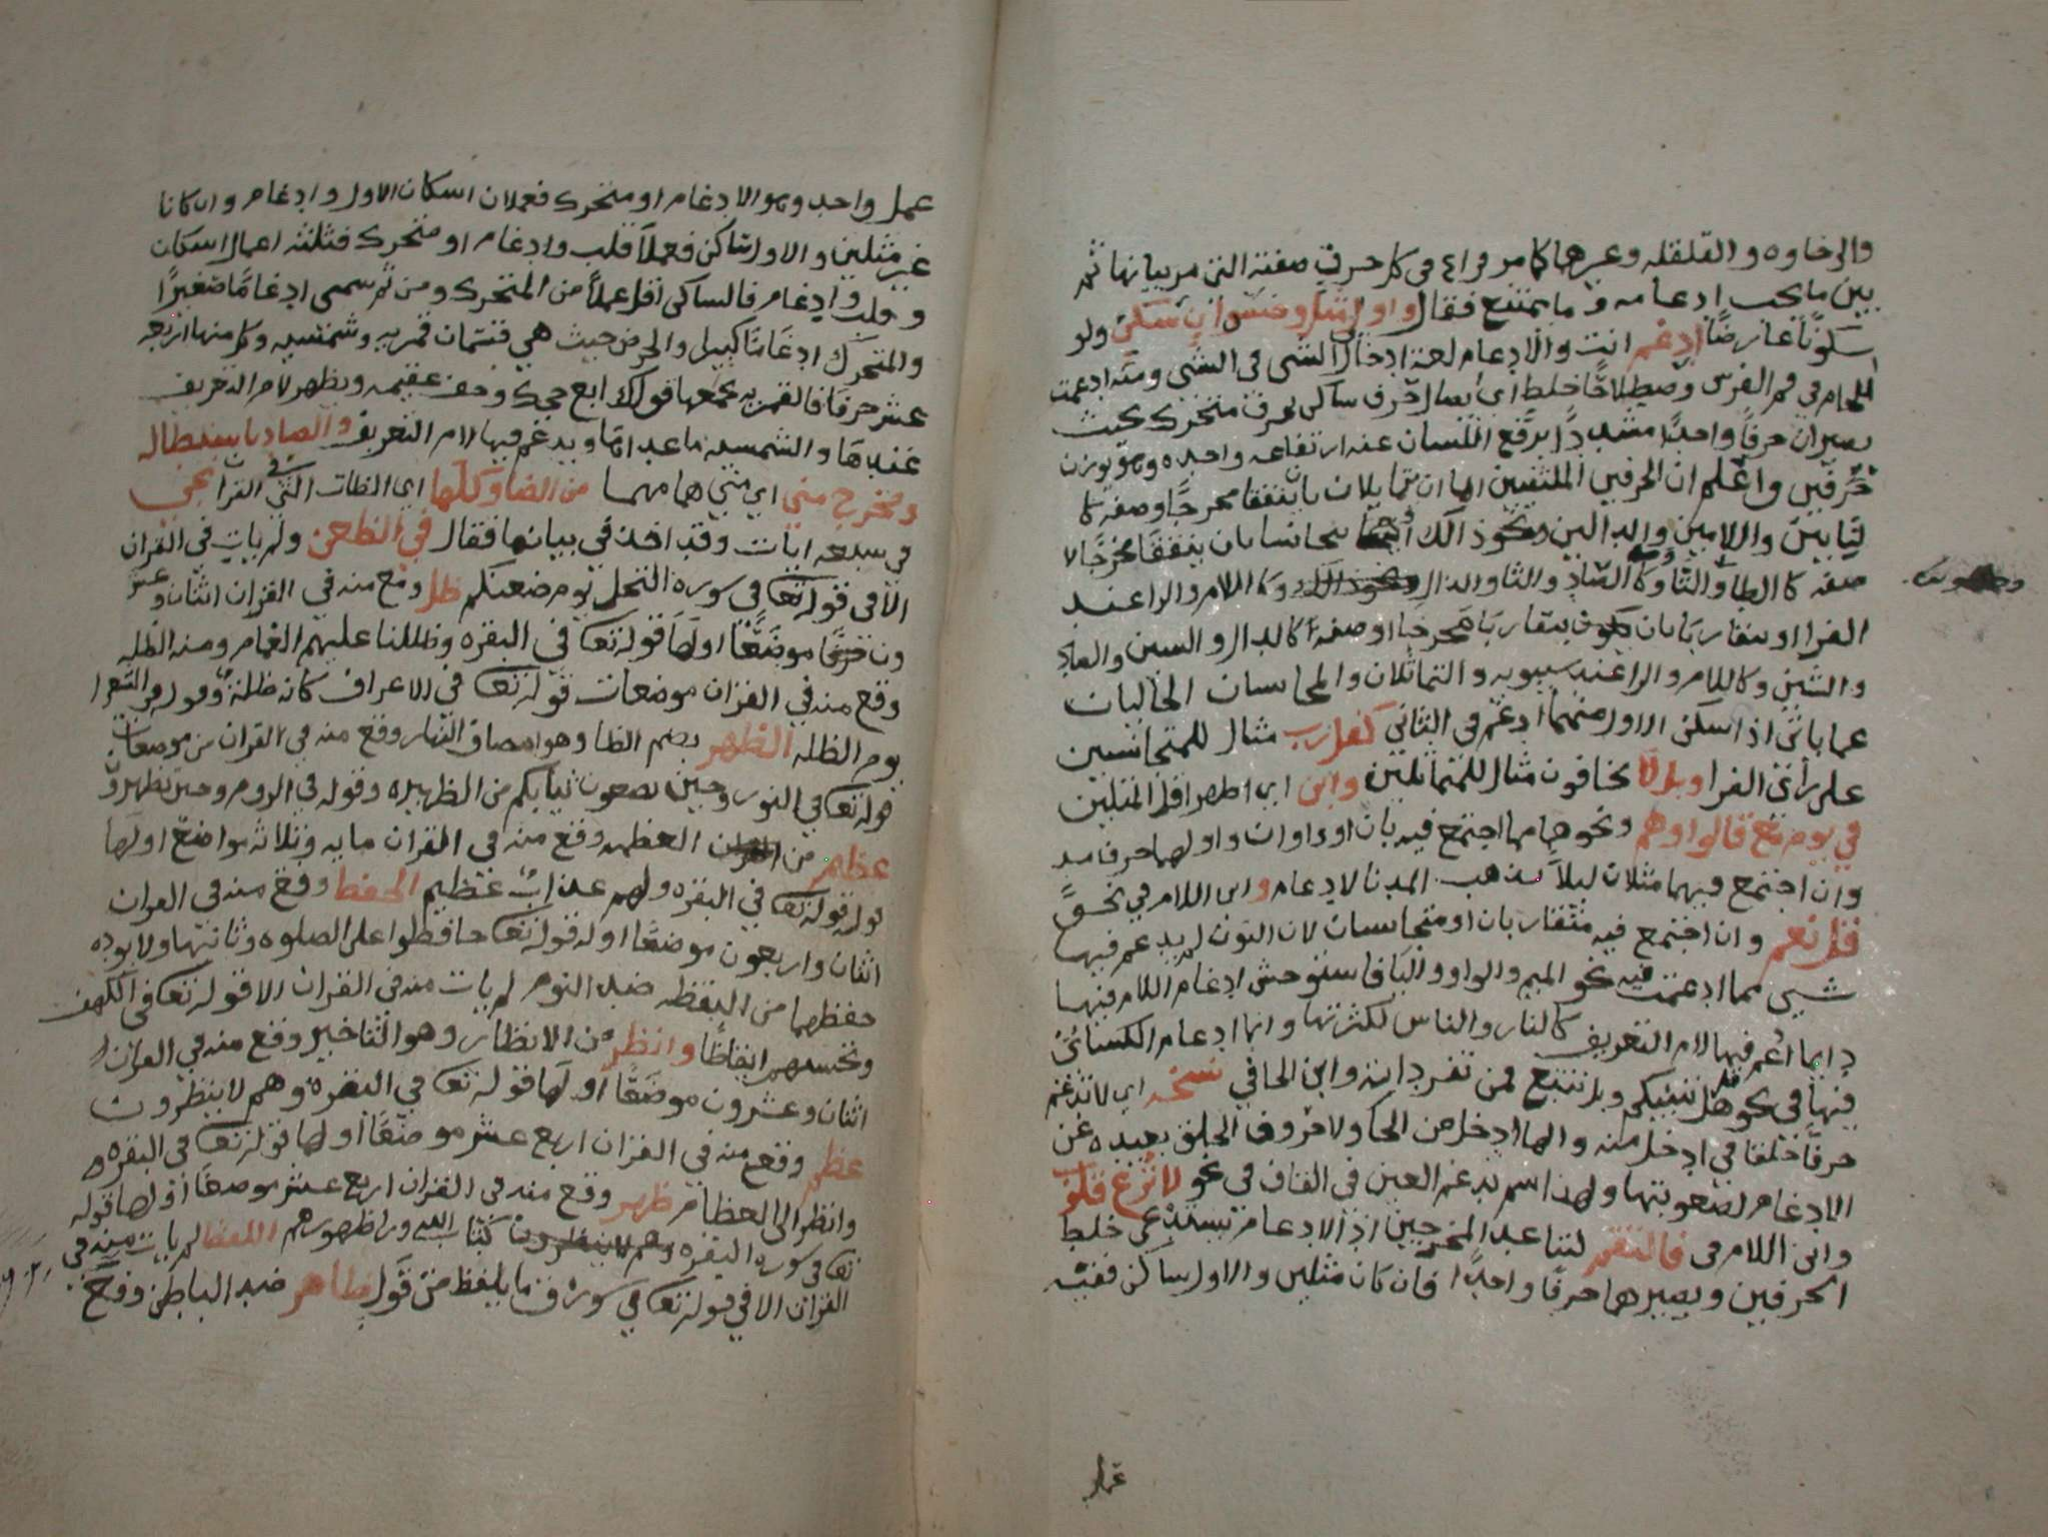 والرخاوه والقلقله وغيرها كما مر فراع في كل حرف صفته التي مر بيانها ثم
بين ما يجب ادغامه وما يمتنع فقال واولي مثل وجنس ان سكن ولو
سكونا عارضا ادغم انت والادغام لغة ادخال الشي في الشي ومنه ادغمت
اللجام في فم الفرس وصطلاحا خلط اي ايصال حرف ساكن بحرف متحرك بحيث
يصيران حرفا واحدا مشددا يرتفع اللسان عنه ارتفاعه واحده وهو بوزن
حرفين واعلم ان الحرفين الملتقيين اما ان تماثلان بان يتفقا مخرجا وصفة كا
لبابين واللامين والدالين ونحو ذالك او يتجانسا بان يتفقا مخرجا لا
صفه كالطا والتا وكا والثا والذال وكاللام والرا عند
الفرا او يتقاربا بان يتقاربا مخرجا او صفة كالدال والسين والضاد
والشين وكاللام والرا عند سيبويه والتماثلان والمتجانسان الخاليان
عما ياتي اذا سكن الاول منهما ادغم في الثاني كقل رب مثال للمتجانسين
على راي الفرا وبل لا يخافون مثال للمتماثلين وابن اي اظهر اول المثلين
في يوم مع قالوا وهم ونحوهما مما اجتمع فيه يان او واوان واولهما حرف مد
وان اجتمع فيهما مثلان ليلا يذهب المد بالادغام وابن اللام في نحو
قل نعم وان اجتمع فيه متقاربان او متجانسان لان النون لم يدغم فيها
شيى مما ادغمت فيه نحو الميم والواو واليا فاستوحش ادغام اللام فيها
وانما ادغم فيها لام التعريف كالنار والناس لكثرتها واما ادغام الكسائي
فيها في نحو هل ننبيكم وبل نتبع فمن تفرداته وابن الحا في سبحه اي لا تدغم
حرفا حلقيا في ادخل منه والها ادخل من الحا ولا حروف الحلق بعيده عن
الادغام لصعوبتها ولهذا لم تدغم الغين في القاف في نحو لا تزغ قلوب
وابن اللام في فالتقم لتباعد المخرجين اذ الادغام يستدعي خلط
الحرفين ويصيرهما حرفا واحدا فان كان مثلين والاول ساكن ففيه
عمل
عمل واحد وهو الادغام او متحرك فعملان اسكان الاول وادغام وان كانا
غير مثلين والاول ساكن فعملا قلب وادغام او متحرك فثلثه اعمال اسكان
وقلب وادغام فالساكن اقل عملا من المتحرك ومن ثم سمى ادغاما صغيرا
والمتحرك ادغاما كبيرا والحرف حيث هي قسمان قمريه وشمسيه وكل منها اربعه
عشر حرفا فالقمريه يجمعها قولك ابغ حجك وخف عقيمه ويظهر لام التعريف
عندها والشمسيه ما عداها ويدغم فيها لام التعريف والضاد باستطاله
ومخرج ميزي اي ميزهما مهما من الظا وكلها اي الظات التي في القرا تجي
في سبعه ابيات وقد اخذ في بيانها فقال في الظعن ولم يات في القران
الا في قوله تعا في سورة النحل يوم ضعنكم ظل وقع منه في القران اثنان وعشر
ون موضعا اولها قوله تعا في البقره وظللنا عليهم الغمام ومنه الظله
وقع منه في القران موضعان قوله تعا في الاعراف كانه ظلة وقوله في الشعرا
يوم الظله الظهر بضم الظا وهو انتصاف النهار وقع منه في القران موضعان
قوله تعا في النور وحين تضعون ثيابكم من الظهيره وقوله في الروم وحين تظهرون
عظم من العظمه وقع منه في القران مايه وثلاثه مواضع اولها
قوله تعا في البقره ولهم عذاب عظيم الحفظ وقع منه في القران
اثنان واربعون موضعا اوله قوله تعا حافظوا على الصلوه وثانيها ولا يوده
حفظهما من اليقظه ضد النوم لم يات منه في القران الا قوله تعا في الكهف
وتحسبهم ايقاظا وانظر من الانظار وهو التاخير وقع منه في القران
اثنان وعشرون موضعا اولها قوله تعا في البقره وهم لا ينظرون
عظم وقع منه في القران اربع عشر موضعا اولها قوله تعا في البقره
وانظر الى العظام ظهر وقع منه في القران اربع عشر موضعا اولها قوله
تعا في سورة البقره كتاب الله ورا ظهورهم اللفظ لم يات منه في
القران الا في قوله تعا في سورة ق ما يلفظ من قول ظاهر ضد الباطن وقع